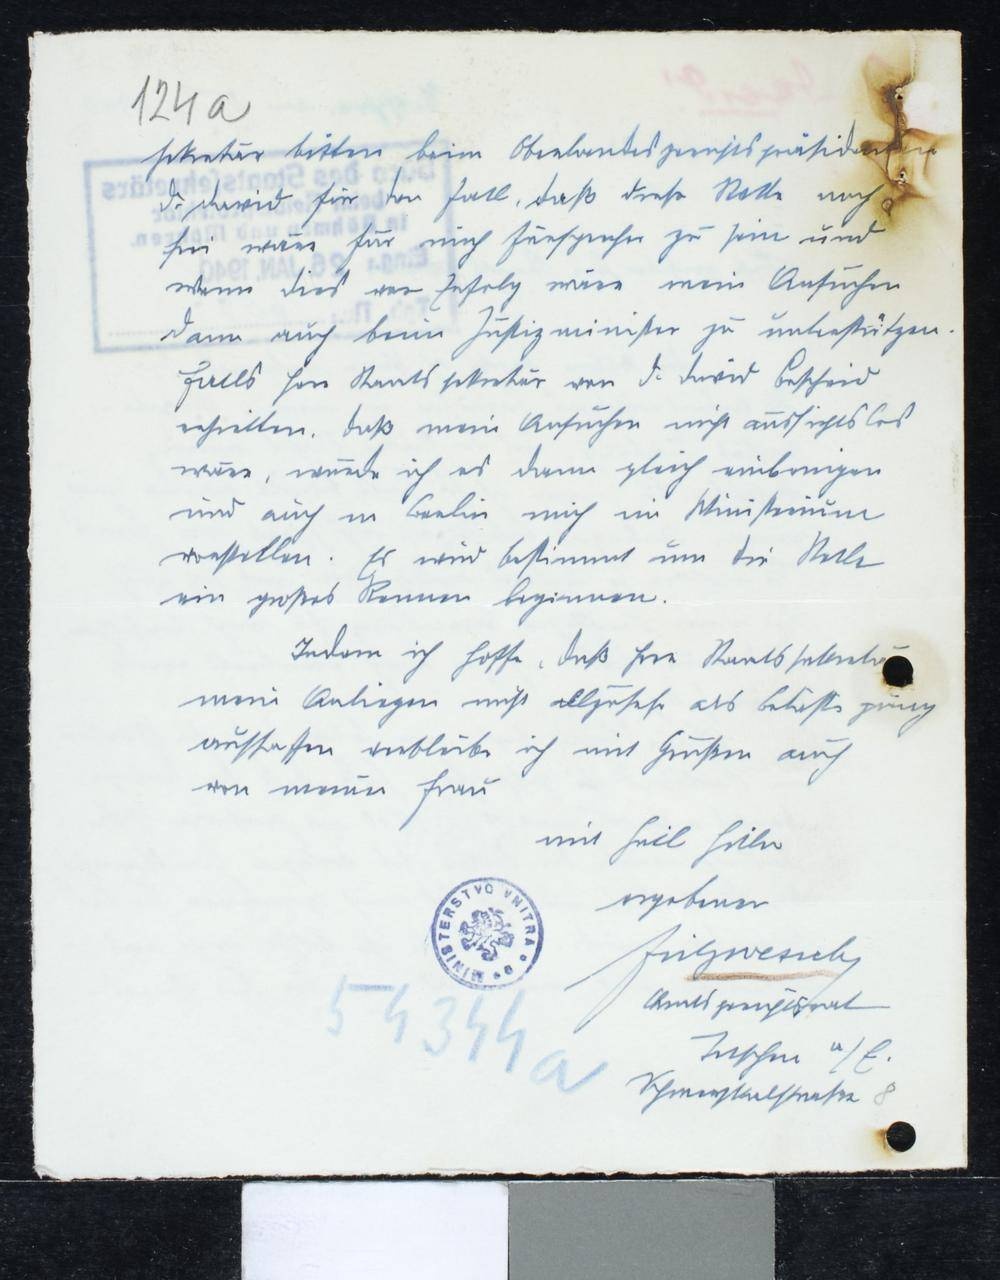 124a
sekretär bitten beim Oberlandesgerichtspräsidenten
Dr. David für den Fall, daß diese Stelle noch
frei wäre für mich Fürsprecher zu sein und
wenn dies von Erfolg wäre mein Ansuchen
dann auch beim Justizminister zu unterstützen.
Falls Herr Staatssekretär von Dr. David Bescheid
erhielten, daß mein Ansuchen nicht aussichtslos
wäre, würde ich es dann gleich einbringen
und auch in Berlin mich im Ministerium
vorstellen. Es wird bestimmt um die Stelle
ein großes Rennen beginnen.
Indem ich hoffe, daß Herr Staatssekretär
mein Anliegen nicht allzusehr als Belästigung
auffassen verbleibe ich mit Grüßen auch
von meiner Frau
mit Heil Hitler
ergebener
Amtsgerichtsrat
Tetschen a/E.
8
MINISTERSTVO VNITRA
54344a
Büro des Staatssekretärs
beim Reichsprotektor
in Böhmen und Mähren.
Eing.: 26. JAN. 1940